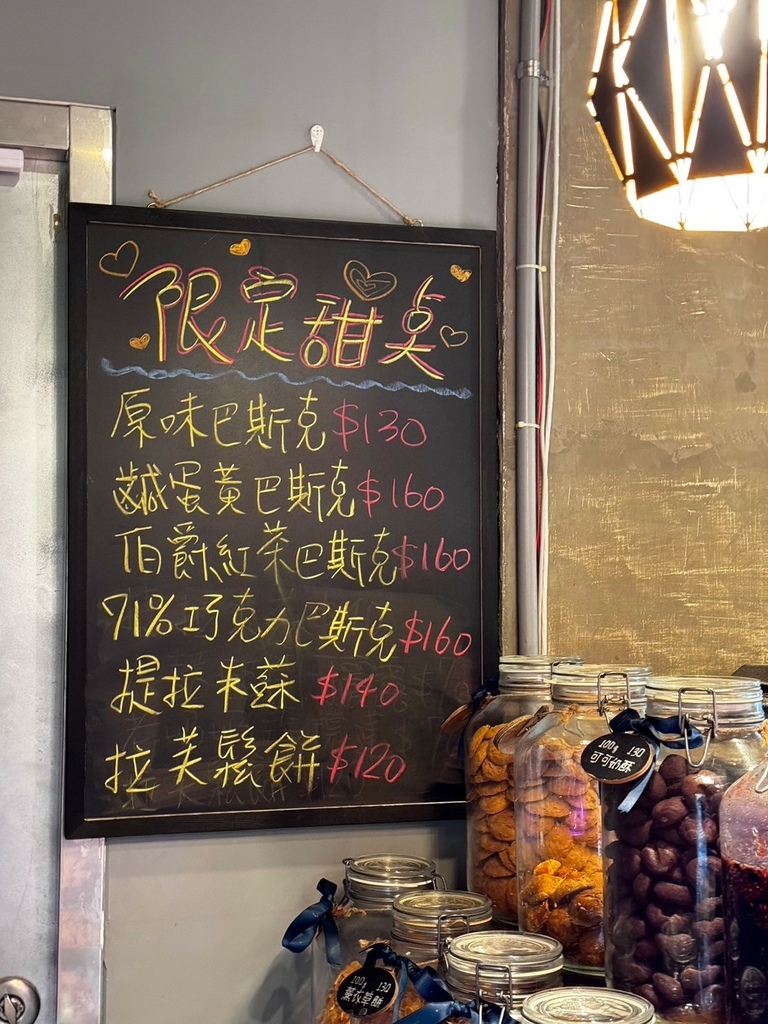 限定甜点
原味巴斯克 $130
鹹蛋黃巴斯克 $160
伯爵紅茶巴斯克 $160
71%巧克力巴斯克 $160
提拉米蘇 $140
拉芙鬆餅 $120
100g 130
可可奶酥
100g 130
薰衣草餅